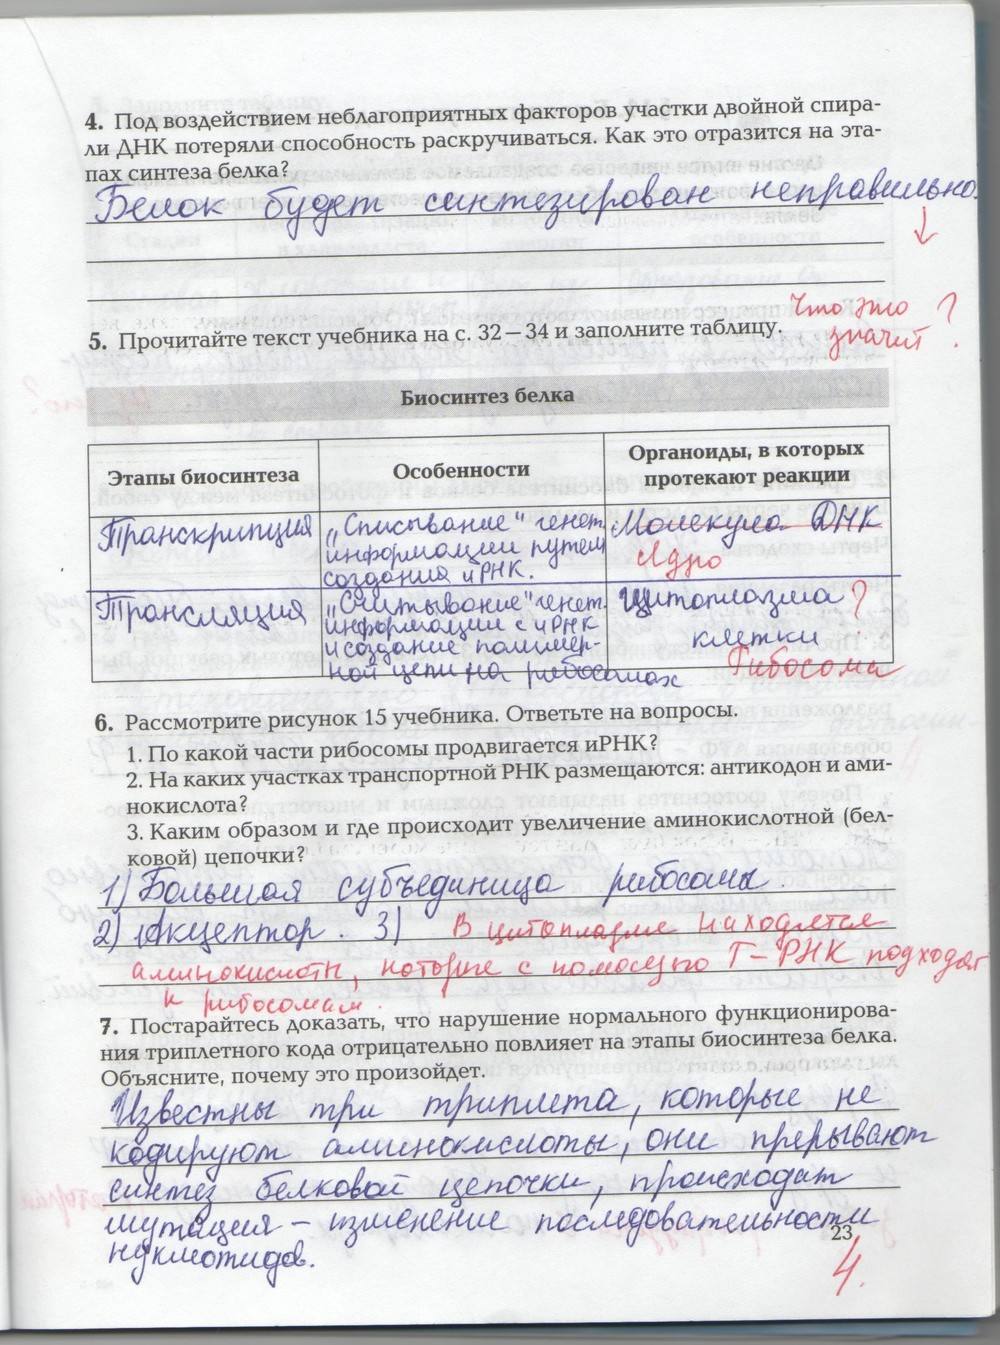 4. Под воздействием неблагоприятных факторов участки двойной спира-
ли ДНК потеряли способность раскручиваться. Как это отразится на эта-
пах синтеза белка?
Белок будет синтезирован неправильно.
Что это
значит ?
5. Прочитайте текст учебника на с. 32 – 34 и заполните таблицу.
Биосинтез белка
Этапы биосинтеза
Особенности
Органоиды, в которых
протекают реакции
Транскрипция
„Списывание" генет.
информации путем
создания иРНК.
Молекула ДНК
Ядро
Трансляция
„Считывание" генет.
информации с иРНК
и создание полимер-
ной цепи на рибосомах
Цитоплазма ?
клетки
Рибосома
6. Рассмотрите рисунок 15 учебника. Ответьте на вопросы.
1. По какой части рибосомы продвигается иРНК?
2. На каких участках транспортной РНК размещаются: антикодон и ами-
нокислота?
3. Каким образом и где происходит увеличение аминокислотной (бел-
ковой) цепочки?
1) Большая субъединица рибосомы.
2) Акцептор. 3) В цитоплазме находятся
аминокислоты, которые с помощью Т-РНК подходят
к рибосомам.
7. Постарайтесь доказать, что нарушение нормального функционирова-
ния триплетного кода отрицательно повлияет на этапы биосинтеза белка.
Объясните, почему это произойдет.
Известны три триплета, которые не
кодируют аминокислоты, они прерывают
синтез белковой цепочки, происходит
мутация – изменение последовательности
нуклиотидов.
23
4.